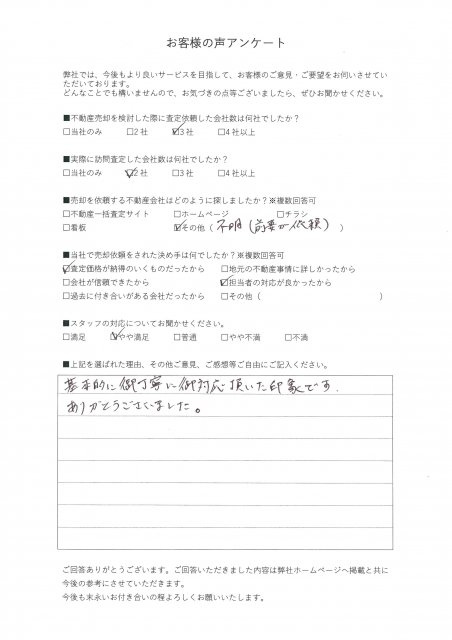 お客様の声アンケート
弊社では、今後もより良いサービスを目指して、お客様のご意見・ご要望をお伺いさせてい
ただいております。
どんなことでも構いませんので、お気づきの点等ございましたら、ぜひお聞かせください。
■不動産売却を検討した際に査定依頼した会社数は何社でしたか？
□当社のみ □2社 ☑3社 □4社以上
■実際に訪問査定した会社数は何社でしたか？
□当社のみ ☑2社 □3社 □4社以上
■売却を依頼する不動産会社はどのように探しましたか？※複数回答可
□不動産一括査定サイト □ホームページ □チラシ
□看板 ☑その他（ 不明（前妻が依頼） ）
■当社で売却依頼をされた決め手は何でしたか？※複数回答可
☑査定価格が納得のいくものだったから □地元の不動産事情に詳しかったから
□会社が信頼できたから ☑担当者の対応が良かったから
□過去に付き合いがある会社だったから □その他（ ）
■スタッフの対応についてお聞かせください。
□満足 ☑やや満足 □普通 □やや不満 □不満
■上記を選ばれた理由、その他ご意見、ご感想等ご自由にご記入ください。
基本的に御丁寧に御対応頂いた印象です．
ありがとうございました。
ご回答ありがとうございます。ご回答いただきました内容は弊社ホームページへ掲載と共に
今後の参考にさせていただきます。
今後も末永いお付き合いの程よろしくお願いいたします。